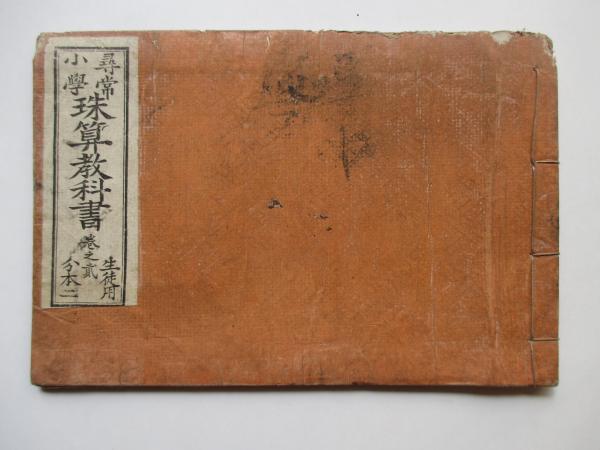 尋常
小學
珠算教科書
卷之貳
生徒用
分本二